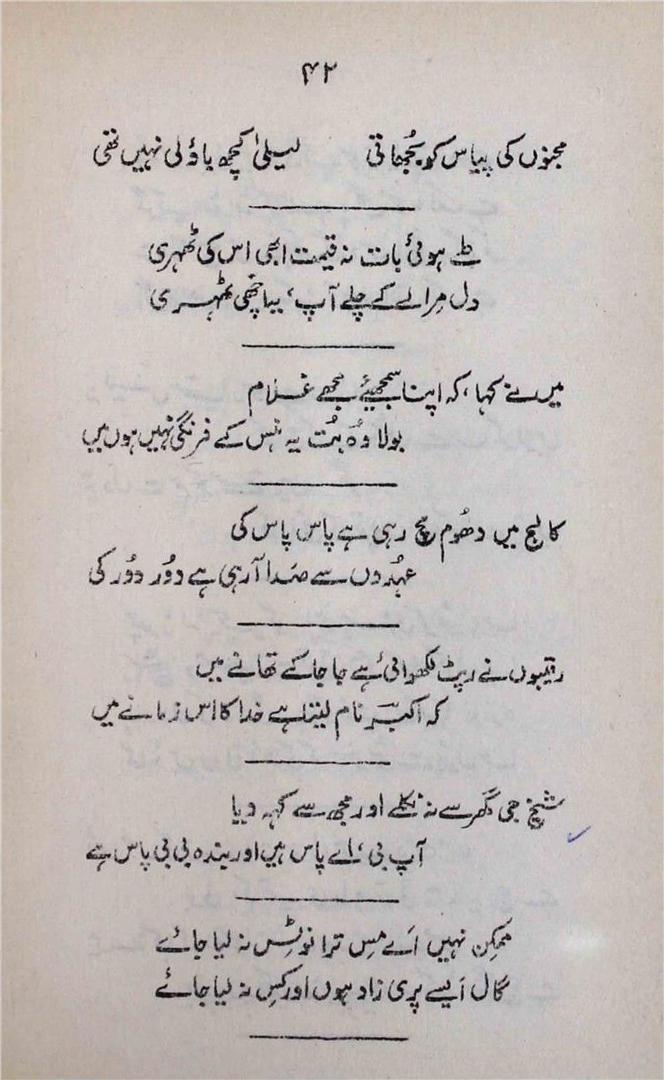 ۴۲
مجنوں کی پیاس کو بُجھاتی لیلیٰ کچھ باؤلی نہیں تھی
طے ہوئی بات نہ قیمت ابھی اس کی ٹھہری
دل مِرا لے کے چلے آپ، یہ اچھی ٹھہری
میں نے کہا، کہ اپنا سمجھیئے مجھے غلام
بولا وہ بُت یہ ہنس کے فرنگی نہیں ہوں میں
کالج میں دھُوم مچ رہی ہے پاس پاس کی
عہدوں سے صَدا آرہی ہے دُور دُور کی
رقیبوں نے رپٹ لکھوائی ہے جا جا کے تھانے میں
کہ اکبر نام لیتا ہے خدا کا اس زمانے میں
شیخ جی گھر سے نہ نکلے اور مجھ سے کہہ دیا
آپ بی، اے پاس ہیں اور بندہ بی بی پاس ہے
ممکن نہیں اَے مِس ترا نوٹِس نہ لیا جائے
گال اَیسے پری زاد ہوں اور کِس نہ لیا جائے